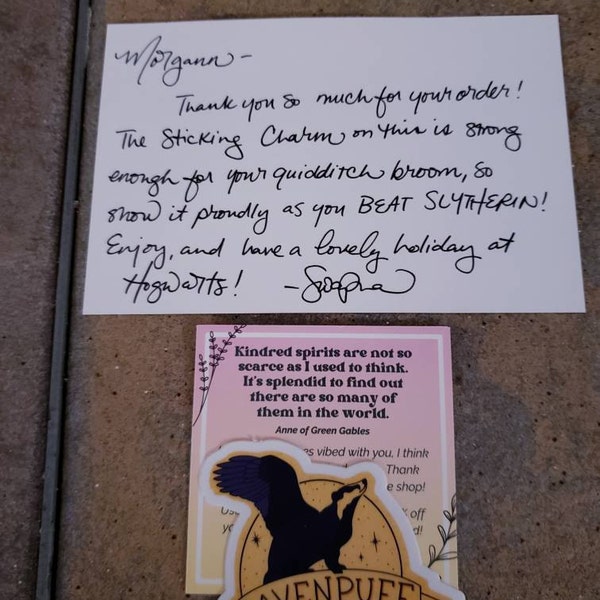 Morgann -
Thank you so much for your order!
The Sticking Charm on this is strong
enough for your quidditch broom, so
show it proudly as you BEAT SLYTHERIN!
Enjoy, and have a lovely holiday at
Hogwarts! - Swapna
Kindred spirits are not so
scarce as I used to think.
It's splendid to find out
there are so many of
them in the world.
Anne of Green Gables
vibed with you, I think
Thank
shop!
off
AVENPUFF